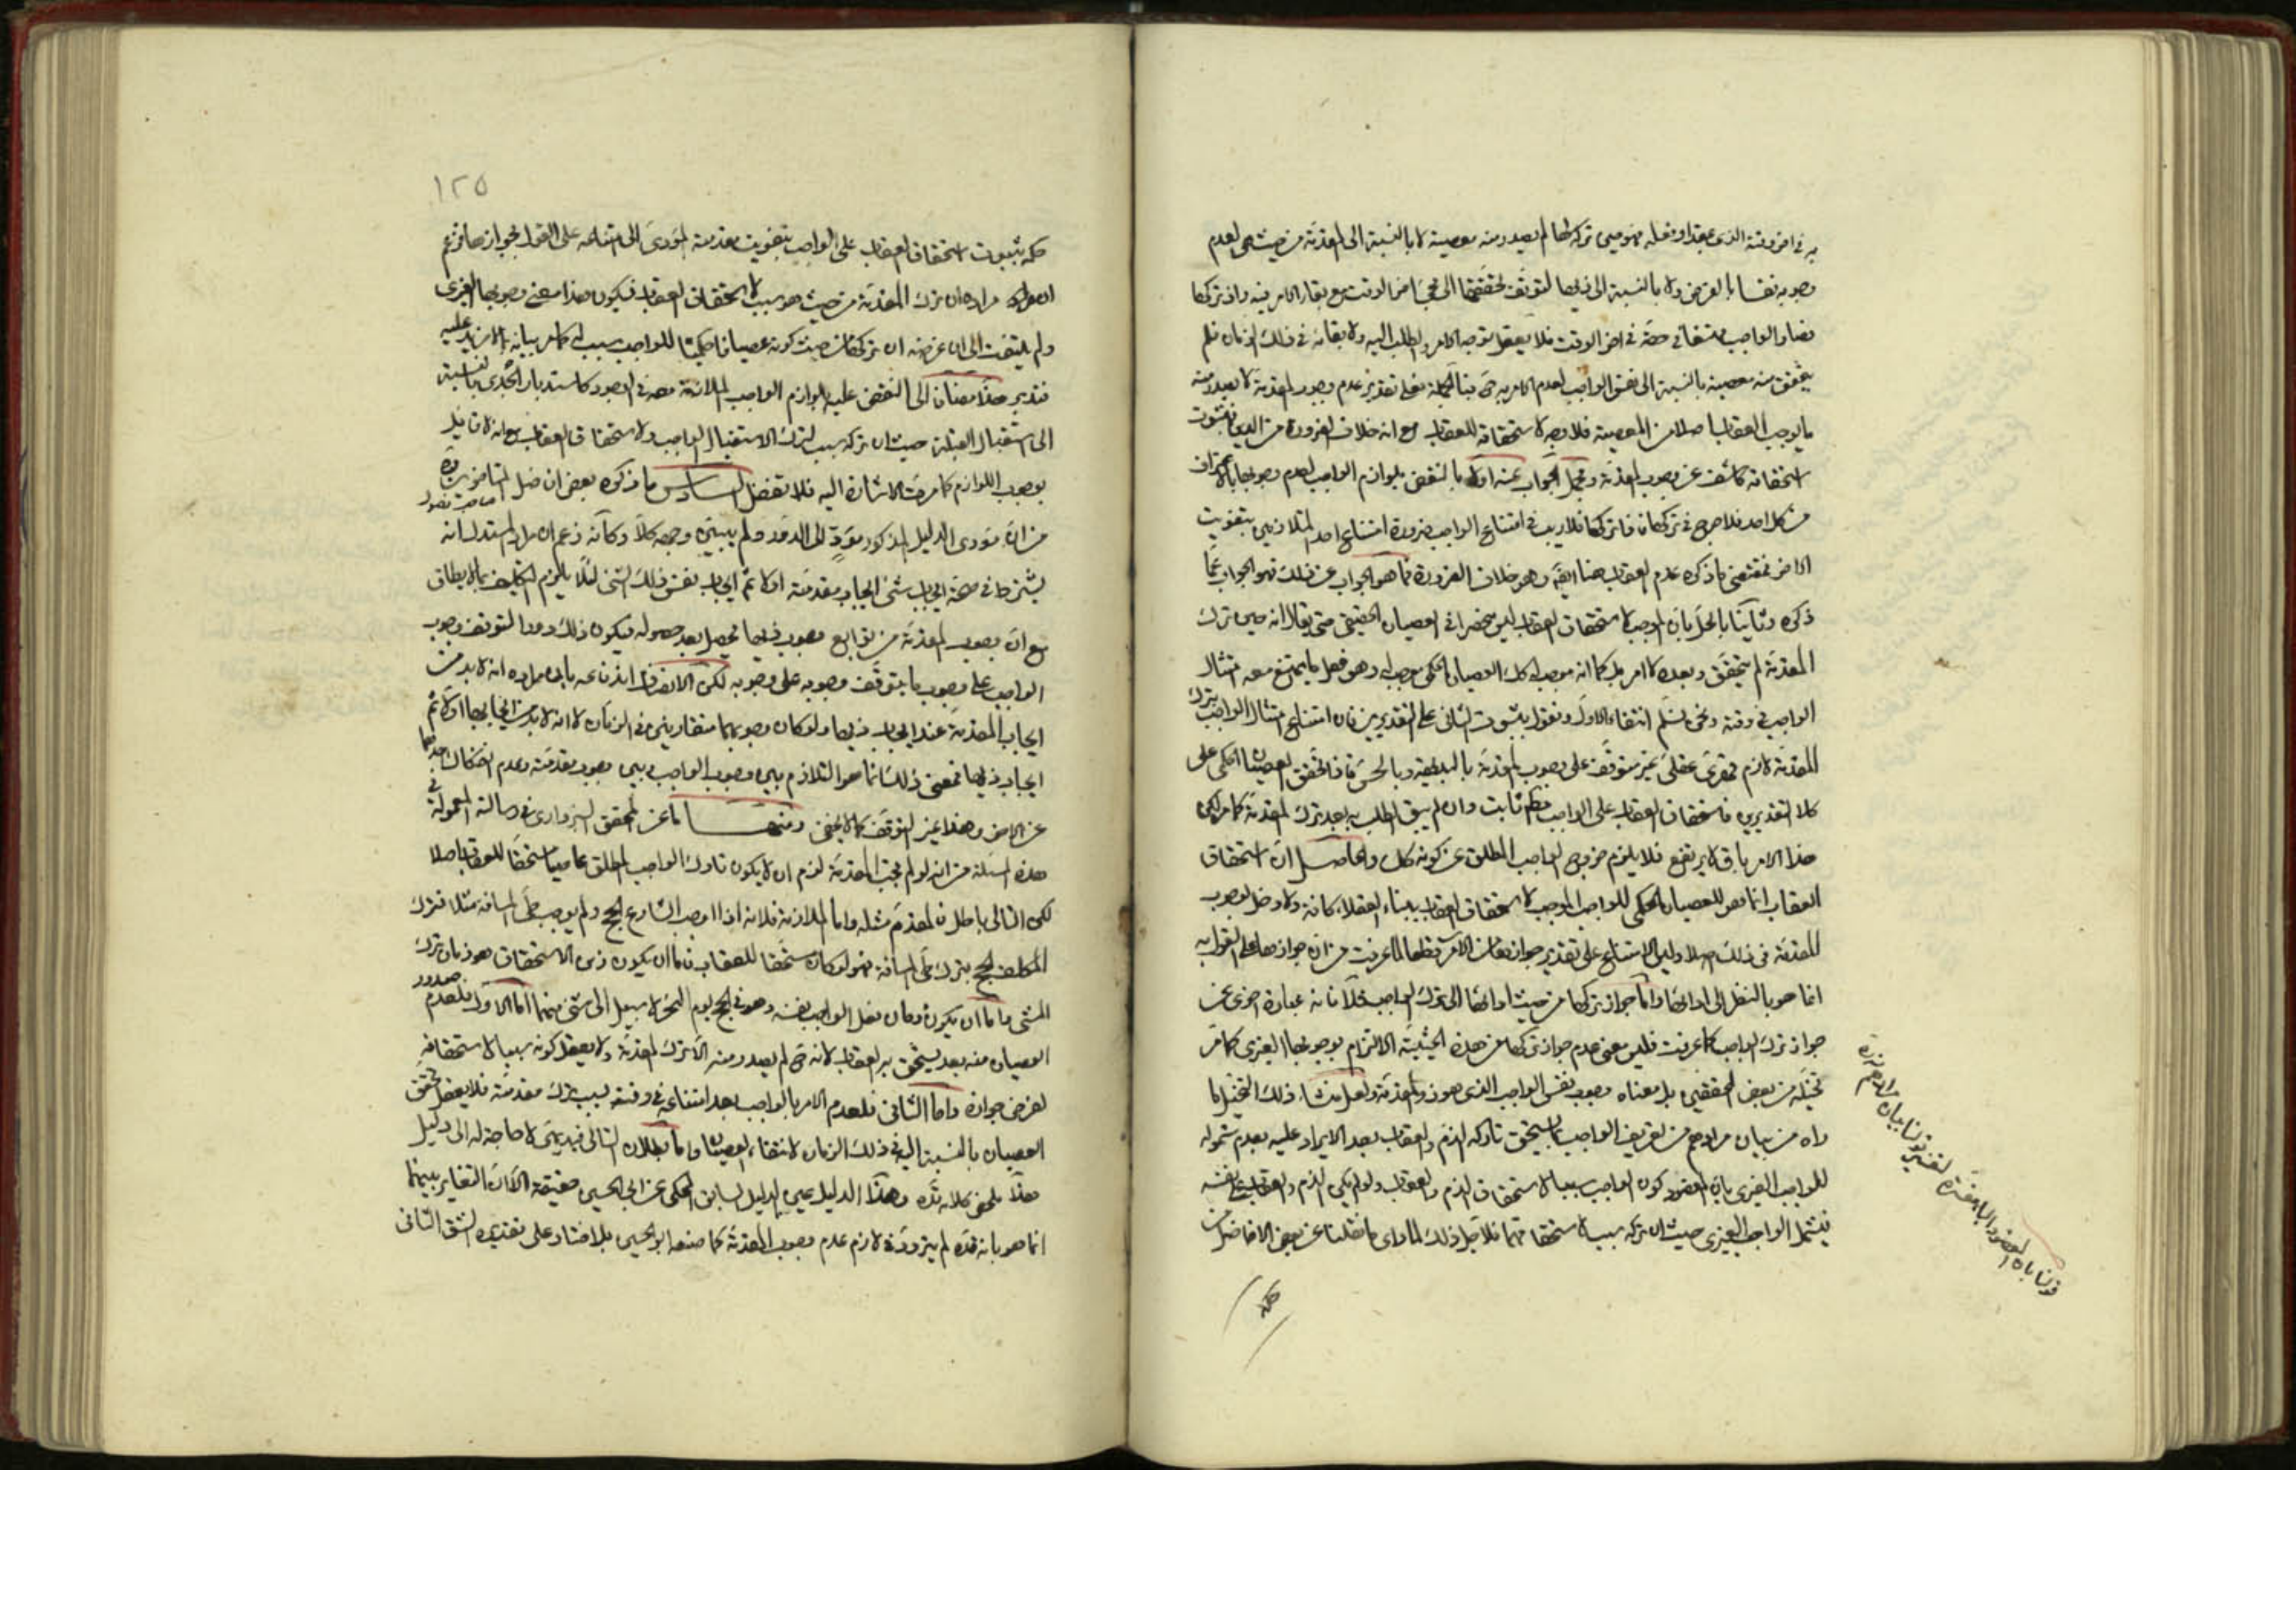 به في اخر وقته الذي بمقدار فعله فهو حين تركها لم يصدر منه معصية لا بالنسبة الى المقدمة من حيث هي لعدم
وجوبه نفسا بالفرض ولا بالنسبة الى ذيها لتوقف تحققها الى مجئ اخر الوقت مع بقاء الامر فيه واذ تركها
وصار الواجب ممتنعا في حقه في اخر الوقت فلا يعقل توجه الامر والطلب اليه ولا بقائه في ذلك الزمان فلم
يتحقق منه معصية بالنسبة الى نفس الواجب لعدم الامر به ح وبالجملة فعلى تقدير عدم وجوب المقدمة لا يصدر منه
ما يوجب العقاب اصلا من المعصية فلا وجه لاستحقاقه للعقاب مع انه خلاف الضرورة من الدين فثبوت
استحقاقه كاشف عن وجوب المقدمة ومحل الجواب عنه اولا بالنقض بلوازم الواجب لعدم وجوبها باعتراف
من كل احد فلا حرج في تركها فاذا تركها فلا ريب في امتناع الواجب ضرورة امتناع احد المتلازمين بتفويت
الاخر فمقتضى ما ذكره عدم العقاب هنا ايضا وهو خلاف الضرورة فما هو الجواب عن ذلك فهو الجواب عما
ذكره وثانيا بالحل بان الموجب لاستحقاق العقاب ليس منحصرا في العصيان الحقيقي حتى يقال انه حين ترك
المقدمة لم يتحقق وبعده لا امر بل كما انه موجب له كك العصيان الحكمي موجب له وهو فعل ما يمتنع معه امتثال
الواجب في وقته ونحن نسلم انتفاء الاول ونقول بثبوت الثاني على التقديرين فان امتناع امتثال الواجب بترك
المقدمة لازم قهري عقلي غير متوقف على وجوب المقدمة بالبديهة وبالحس فاذا تحقق العصيان الحكمي على
كلا التقديرين فاستحقاق العقاب على الواجب ثابت وان لم يبق الطلب به بعد ترك المقدمة كما مر لكن
هذا الامر باق لا يرتفع فلا يلزم خروج الواجب المطلق عن كونه كك والحاصل ان استحقاق
العقاب انما هو للعصيان الحكمي للواجب الموجب لاستحقاق العقاب ببناء العقلاء كافة ولا دخل لوجوب
المقدمة في ذلك اصلا وليس الامتناع على تقدير جوازها من الامر قطعا لما عرفت من ان جوازها على القول به
انما هو بالنظر الى ذاتها واما جواز تركها من حيث ادائها الى ترك الواجب فلا فانه عبارة اخرى عن
جواز ترك الواجب كما عرفت فليس معنى عدم جواز تركها من هذه الحيثية الالتزام بوجوبها الغيري كما قد
تخيله من بعض المحققين بل معناه وجوب نفس الواجب الذي هو ذو المقدمة ولعل منشاء ذلك التخيل ما
راه من بيان مرادهم من تعريف الواجب بما يستحق تاركه الذم والعقاب بعد الايراد عليه بعدم شموله
للواجب الغيري بان المقصود كون الواجب سببا لاستحقاق الذم والعقاب ولو لم يكن الذم والعقاب على نفسه
فيشمل الواجب الغيري حيث ان تركه سبب لاستحقاقهما فلاجل ذلك لما راى ما نقلنا عن بعض الافاضل من
حكمه
حكمه بثبوت استحقاق العقاب على الواجب بتفويت مقدمته المؤدى الى امتناعه على القول بجوازها فزعم
ان مراده ان ترك المقدمة من حيث هو سبب لاستحقاق العقاب فيكون هذا معنى وجوبها الغيري
ولم يلتفت الى ان غرضه ان تركها من حيث كونه عصيانا حكميا للواجب سبب له كما مر بيانه بما لا مزيد عليه
فتدبر هذا مضافا الى النقض عليه بلوازم الواجب الملازمة معه في الوجود كاستدبار الجدي بالنسبة
الى استقبال القبلة حيث ان تركه سبب لترك الاستقبال الواجب ولاستحقاق العقاب مع انه لا قائل
بوجوب اللوازم كما مرت الاشارة اليه فلا تغفل السادس ما ذكره بعض افاضل المتاخرين
من ان مؤدى الدليل المذكور مؤد الى الدور ولم يبين وجهه كلا وكانه زعم ان مراد المستدل انه
يشترط في صحة ايجاب شئ ايجاب مقدمته اولا ثم ايجاب نفس ذلك الشئ لئلا يلزم التكليف بما لا يطاق
مع ان وجوب المقدمة من توابع وجوب ذيها يحصل بعد حصوله فيكون ذلك دورا لتوقف وجوب
الواجب على وجوب ما يتوقف وجوبه على وجوبه لكن الانصاف
ايجاب المقدمة عند ايجاب ذيها ولو كان وجوبهما متقاربين في الزمان لا انه لا بد من ايجابها اولا ثم
ايجاب ذيها فمعنى ذلك انما هو التلازم بين وجوب الواجب وبين وجوب مقدمته وعدم انفكاك احدهما
عن الاخر وهذا غير التوقف كما لا يخفى ومنها ما عن المحقق السبزواري في رسالته المعمولة في
هذه المسئلة من انه لو لم تجب المقدمة لزم ان لا يكون تارك الواجب المطلق عاصيا مستحقا للعقاب اصلا
لكن التالي باطل فالمقدم مثله واما الملازمة فلانه اذا اوجب الشارع الحج ولم يوجب طي المسافة مثلا فترك
المكلف الحج بترك طي المسافة فهو لو كان مستحقا للعقاب فاما ان يكون زمن الاستحقاق هو زمان ترك
المشى واما ان يكون زمان فعل الواجب نفسه وهو في الحج يوم النحر لا سبيل الى شئ منهما اما الاول فلعدم صدور
العصيان منه بعد يستحق به العقاب لانه ح لم يصدر منه الا ترك المقدمة ولا يعقل كونه سببا لاستحقاقه
لفرض جوازه واما الثاني فلعدم الامر بالواجب بعد امتناعه في وقته بسبب ترك مقدمته فلا يعقل تحقق
العصيان بالنسبة اليه في ذلك الزمان لانتفاء العصيان واما بطلان التالي فبديهي لا حاجة له الى دليل
هذا ملخص كلامه قده وهذا الدليل عين الدليل السابق المحكي عن ابي الحسين حقيقة الا ان التغاير بينهما
انما هو بانه قده لم يتردد في لازم عدم وجوب المقدمة كما صنعه ابو الحسين بل اختار على تقديره الشق الثاني
١٢٥